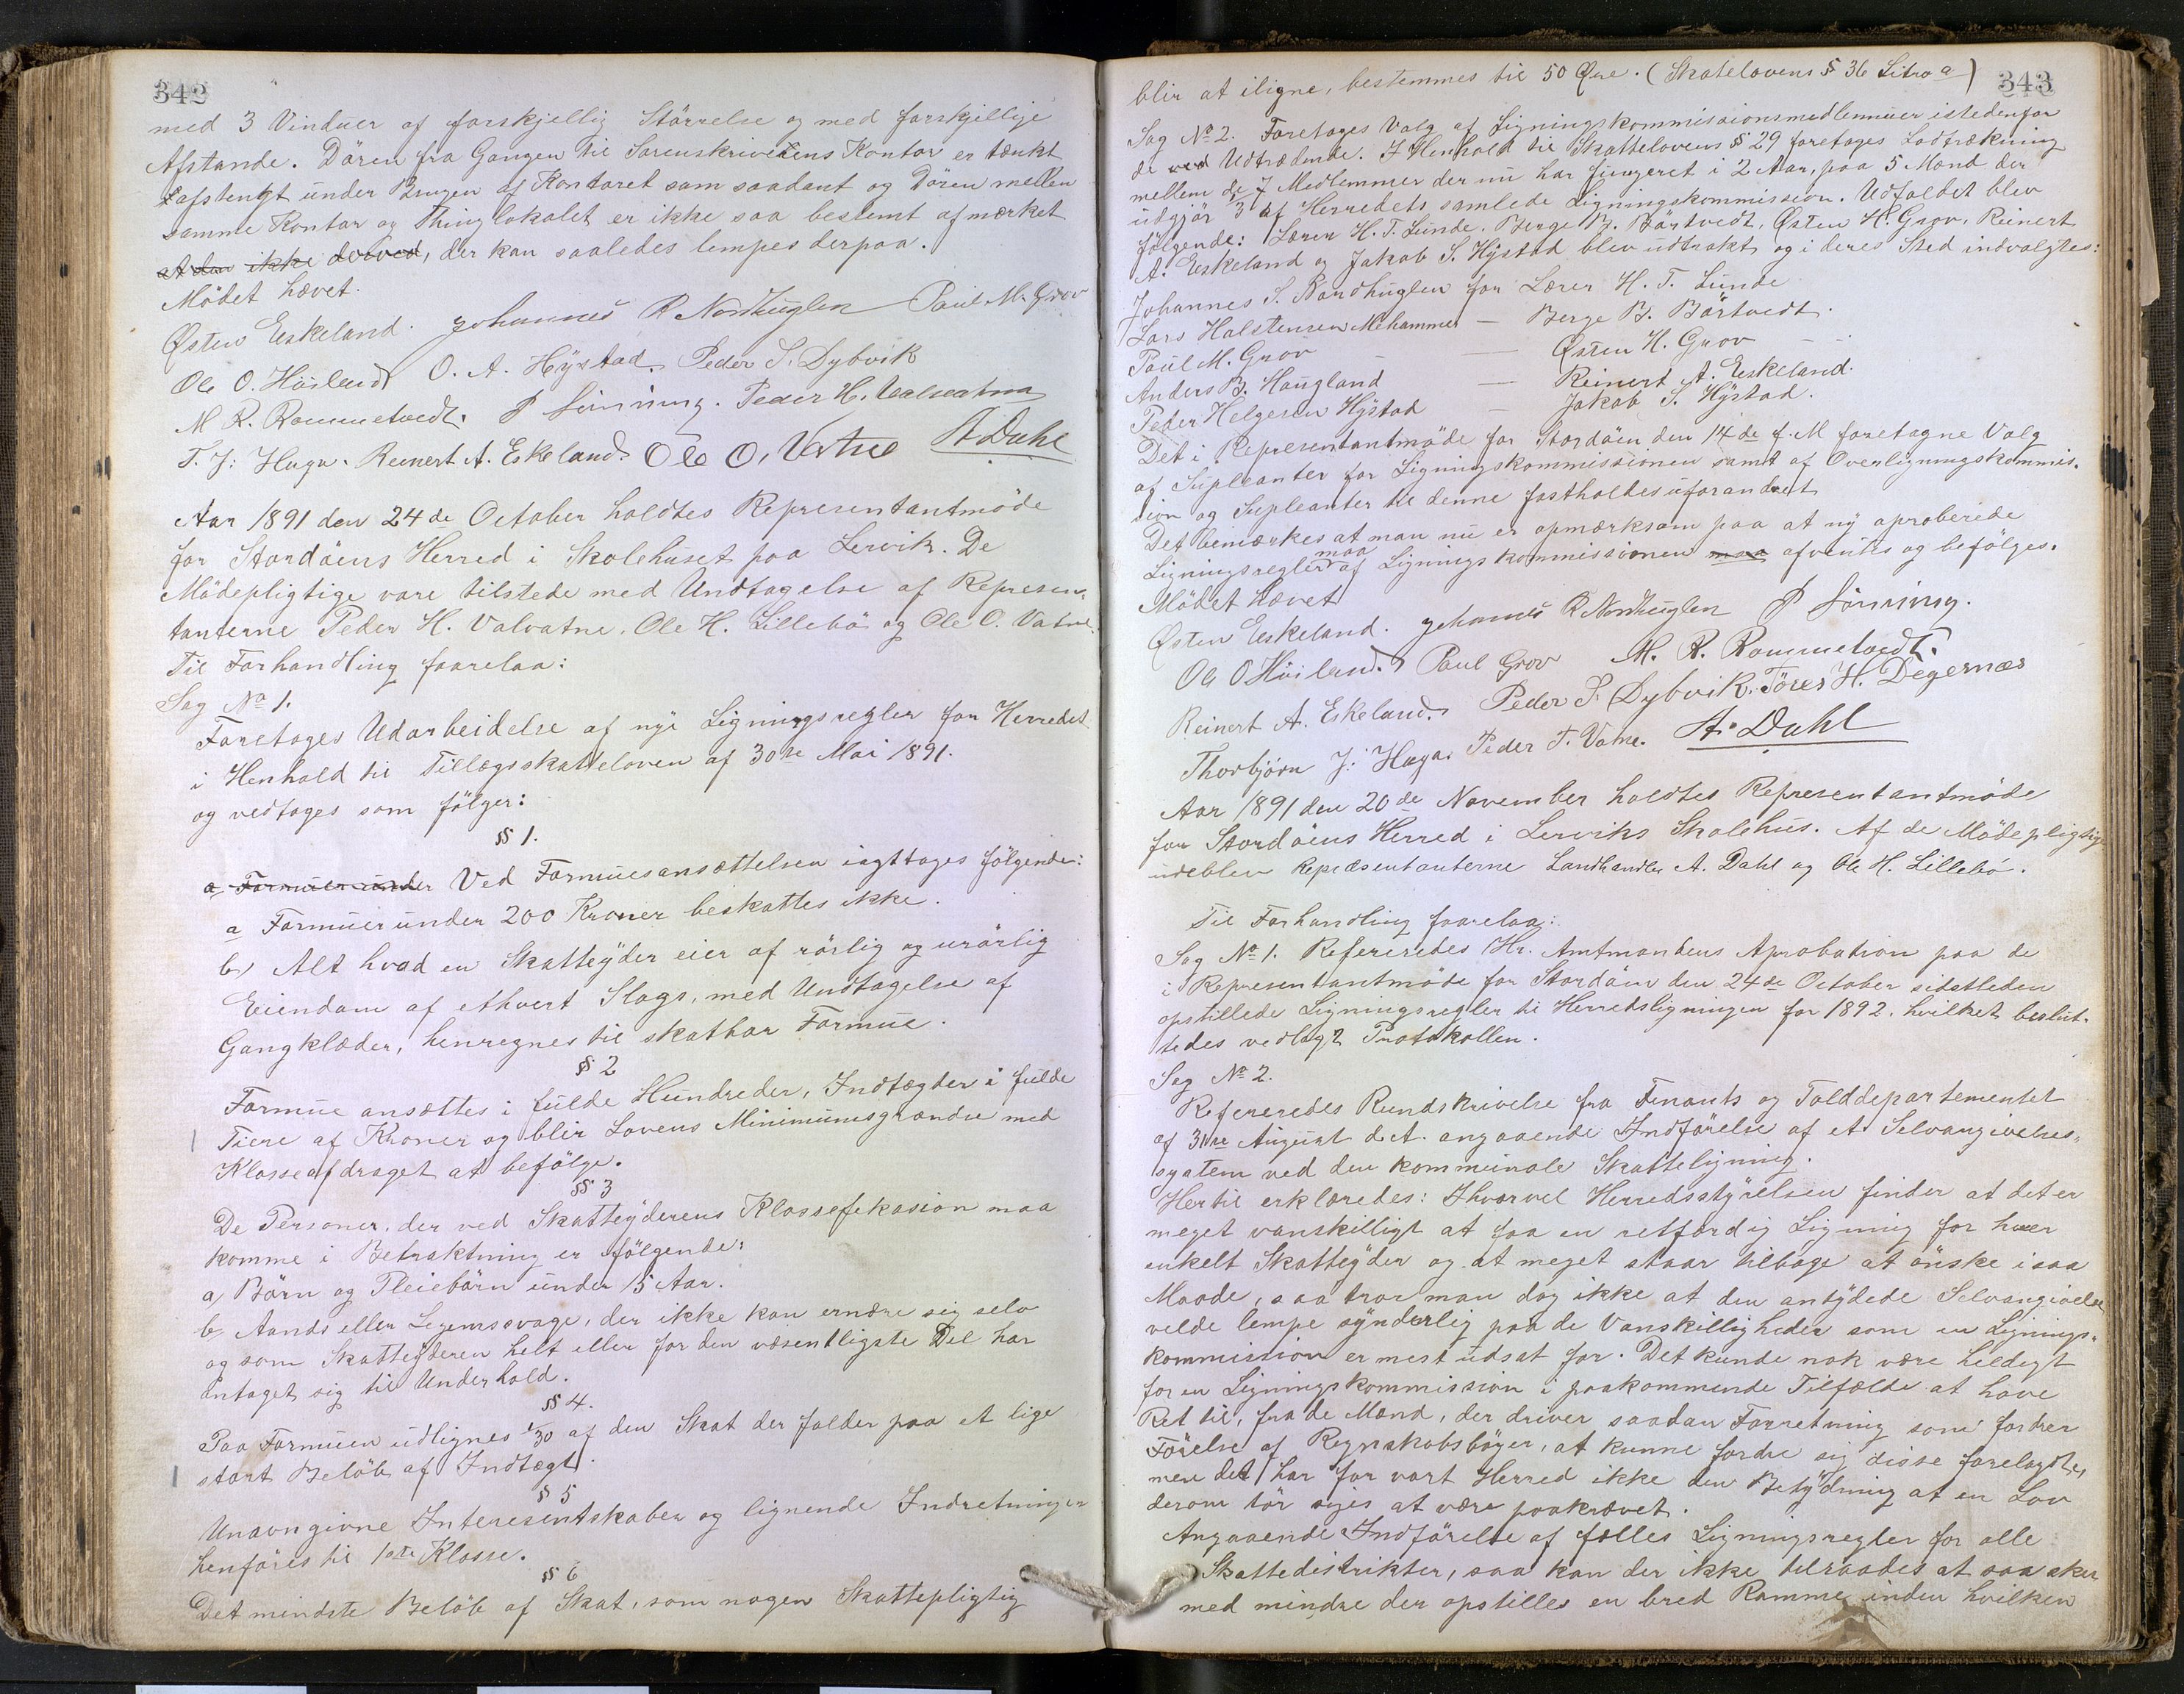 342
med 3 Vinduer af forskjellig Störrelse og med forskjellige
Afstande. Dören fra Gangen til Sorenskriverens Kontor er tænkt
afstengt under Brugen af Kontoret som saadant og Dören mellem
samme Kontor og Thinglokalet er ikke saa bestemt afmærket
at den ikke derved, der kan saaledes lempes derpaa.
Mödet hævet.
Østen Eskeland. Johannes R Nordhuglen Paul M. Grov
Ole O. Höiland O. A. Hÿstad. Peder S. Dybvik
M R. Rommetvedt. P Sönning. Peder H. Valvatna
T. J. Haga. Reinert A. Eskeland. Ole O. Vatne A Dahl
Aar 1891 den 24de October holdtes Representantmöde
for Stordöens Herred i Skolehuset paa Lervik. De
Mödepligtige vare tilstede med Undtagelse af Represen-
tanterne Peder H. Valvatne, Ole H. Lillebö og Ole O. Vatne.
Til Forhandling foorelaa:
Sag No 1.
Foretages Udarbeidelse af nye Ligningsregler for Herredet
i Henhold til Tillægsskatteloven af 30te Mai 1891.
og vedtages som fölger:
§ 1.
a Formuer under Ved Formuesansættelsen iagttages fölgende:
a Formuer under 200 Kroner beskattes ikke.
b, Alt hvad en Skatteÿder eier af rörlig og urörlig
Eiendom af ethvert Slags, med Undtagelse af
Gangklæder, henregnes til skatbar Formue.
§ 2
Formue ansættes i fulde Hundreder, Indtægder i fulde
Tiere af Kroner og blir Lovens Minimumsgrændse med
Klasseafdraget at befölge.
§ 3
De Personer, der ved Skatteÿderens Klassefikasion maa
komme i Betraktning er fölgende:
a, Börn og Pleiebörn under 15 Aar.
b, Aands eller Legemssvage, der ikke kan ernære sig selv
og som Skatteÿderen helt eller for den væsentligste Del har
antaget sig til Underhold.
§ 4.
Paa Formuen udlignes 1/30 af den Skat der falder paa et lige
stort Belöb af Indtægt.
§ 5
Unavngivne Interesentskaber og lignende Indretninger
henföres til 1ste Klasse.
§ 6
Det mindste Belöb af Skat, som nogen Skattepligtig
343
blir at iligne, bestemmes til 50 Øre. (Skatelovens § 36 Litra a)
Sag No 2. Foretages Valg af Ligningskommissionsmedlemmer istedenfor
de ved Udtrædende. I Henhold til Skattelovens § 29 foretages Lodtrækning
mellem de 7 Medlemmer der nu har fungeret i 2 Aar, paa 5 Mand der
udgjör 1/3 af Herredets samlede Ligningskommission. Udfaldet blev
fölgende: Lærer H. T. Lunde, Berge B. Börtvedt, Østen H. Grov, Reinert
A. Eskeland og Jakob S. Hÿstad blev udtrakt og i deres Sted indvalgtes:
Johannes S. Nordhuglen for Lærer H. T. Lunde
Lars Halstensen Mehammer — Berge B. Börtvedt.
Paul M. Grov — Østen H. Grov
Anders B. Haugland — Reinert A. Eskeland.
Peder Helgesen Hÿstad — Jakob S. Hÿstad.
Det i Representantmöde for Stordöen den 14de d. M foretagne Valg
af Supleanter for Ligningskommissionen samt af Overligningskommis-
sion og Supleanter til denne fastholdes uforandret
Det bemærkes at man nu er opmærksom paa at nÿ aproberede
Ligningsregler maa af Ligningskommissionen maa afventes og befölges.
Mödet hævet
Østen Eskeland. Johannes R Nordhuglen P Sönning.
Ole O Höiland. Paul Grov M. R. Rommetvedt.
Reinert A. Eskeland. Peder S. Dybvik. Töres H. Degernæs
Thorbjörn J. Haga. Peder T. Vatne. A. Dahl
Aar 1891 den 20de November holdtes Representantmöde
for Stordöens Herred i Lerviks Skolehus. Af de Mödepligtige
udeblev Repræsentanterne Landhandler A. Dahl og Ole H. Lillebö.
Til Forhandling foorelaa:
Sag No 1. Refereredes Hr. Amtmandens Aprobation paa de
i Representantmöde for Stordöen den 24de October sidstleden
opstillede Ligningsregler til Herredsligningen for 1892, hvilket beslut-
tedes vedlagt Protokollen.
Sag No 2.
Refereredes Rundskrivelse fra Finants og Tolddepartementet
af 31te August d. A. angaaende Indförelse af et Selvangivelses-
system ved den kommunale Skatteligning.
Hertil erklæredes: Ihvorvel Herredsstÿrelsen finder at det er
meget vanskelligt at faa en retfærdig Ligning for hver
enkelt Skatteÿder og at meget staar tilbage at önske i saa
Maade, saa tror man dog ikke at den antÿdede Selvangivelse
vilde lempe sÿnderlig paa de Vanskelligheder som en Lignings-
kommission er mest udsat for. Det kunde nok være heldigt
for en Ligningskommission i paakommende Tilfælde at have
Ret til, fra de Mænd, der driver saadan Forretning som fordrer
Förelse af Regnskabsböger, at kunne fordre sig disse forelagte,
men det har for vort Herred ikke den Betÿdning at en Lov
derom tör siges at være paakrævet.
Angaaende Indförelse af fælles Ligningsregler for alle
Skattedistrikter, saa kan der ikke tilraades at saa sker
med mindre der opstilles en bred Ramme inden hvilken